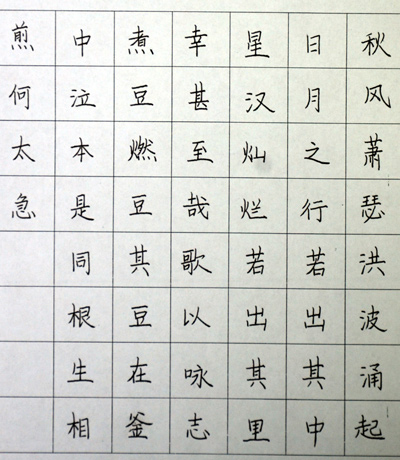 秋风萧瑟洪波涌起
日月之行若出其中
星汉灿烂若出其里
幸甚至哉歌以咏志
煮豆燃豆其豆在釜
中泣本是同根生相
煎何太急